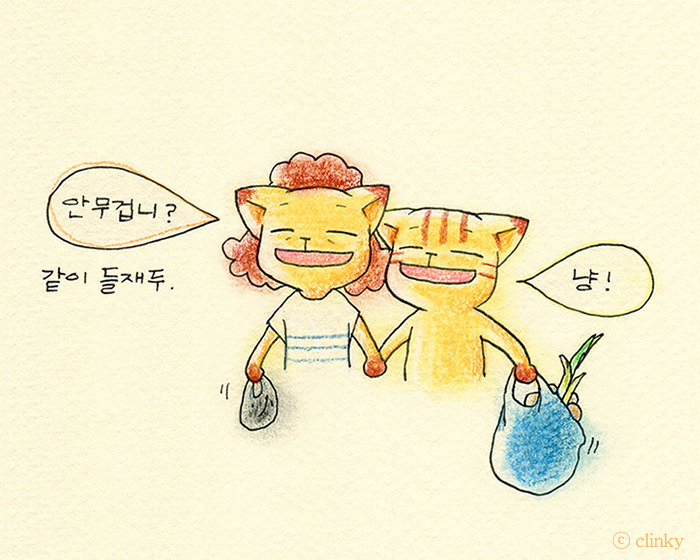 안무겁니?
같이 들재두.
냥!
ⓒ clinky